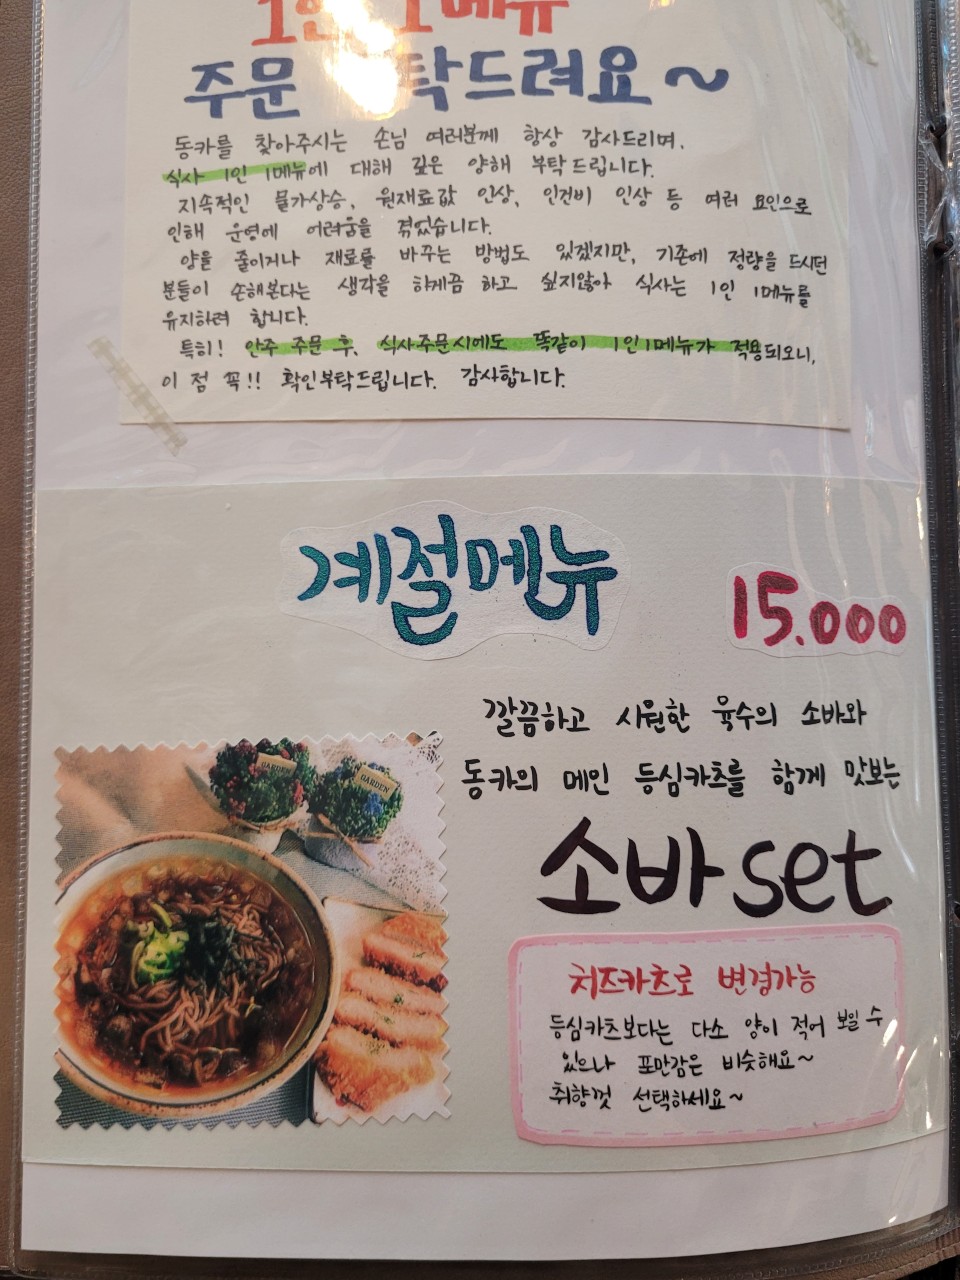 1인 1메뉴
주문 부탁드려요~
동카를 찾아주시는 손님 여러분께 항상 감사드리며,
식사 1인 1메뉴에 대해 깊은 양해 부탁드립니다.
지속적인 물가상승, 원재료값 인상, 인건비 인상 등 여러 요인으로
인해 운영에 어려움을 겪었습니다.
양을 줄이거나 재료를 바꾸는 방법도 있겠지만, 기존에 정량을 드시던
분들이 손해본다는 생각을 하게끔 하고 싶지않아 식사는 1인 1메뉴를
유지하려 합니다.
특히! 안주 주문 후, 식사주문시에도 똑같이 1인1메뉴가 적용되오니,
이 점 꼭!! 확인부탁드립니다. 감사합니다.
계절메뉴
15.000
깔끔하고 시원한 육수의 소바와
동카의 메인 등심카츠를 함께 맛보는
GARDEN
GARDEN
소바 set
치즈카츠로 변경가능
등심카츠보다는 다소 양이 적어 보일 수
있으나 포만감은 비슷해요~
취향껏 선택하세요~